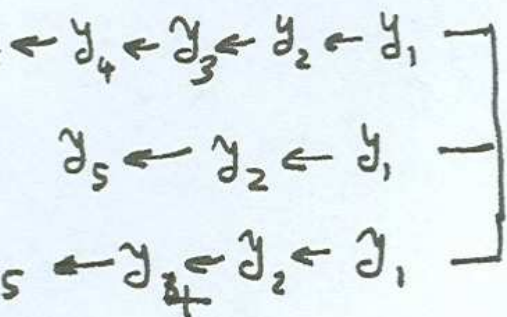 ← y₄ ← y₃ ← y₂ ← y₁
y₅ ← y₂ ← y₁
₅ ← y ← y₂ ← y₁